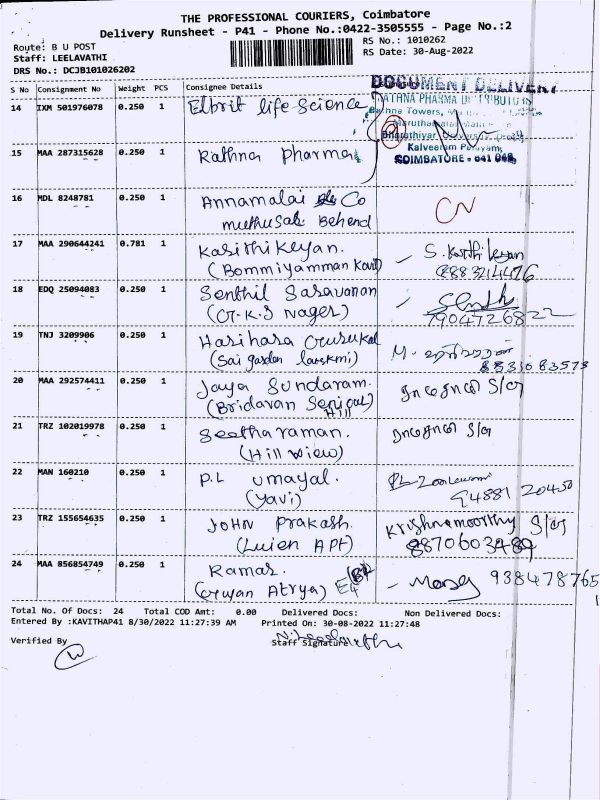 THE PROFESSIONAL COURIERS, Coimbatore
Delivery Runsheet - P41 - Phone No.:0422-3505555 - Page No.:2
Route: B U POST
RS No.: 1010262
Staff: LEELAVATHI
RS Date: 30-Aug-2022
DRS No.: DCJB101026202
S No Consignment No Weight PCS Consignee Details
DOCUMENT DELIVERY
14 IXM 501976078 0.250 1 Elbrit life-Science
RATHNA PHARMA DISTRIBUTORS
Rathna Towers,
Bharathiyar
Kalveeram Palayam,
COIMBATORE - 641 046
15 MAA 287315628 0.250 1 Rathna pharma
16 MDL 8248781 0.250 1 Annamalai & Co CN
Behend
17 MAA 290644241 0.781 1 Kasithikeyan. S. Karthikeyan
(Bommiyamman Kovil)
18 EDQ 25094083 0.250 1 Senthil Sasavanan
(G.K.S Nager) 7904726822
19 TNJ 3209906 0.250 1 Hasihasa
(Sai garden) 8833083573
20 MAA 292574411 0.250 1 Jaya Sundaram.
(Bridavan Hill)
21 TRZ 102019978 0.250 1 Seetharaman.
(Hill view)
22 MAN 160210 0.250 1 P.L Umayal.
(Yavi) 94881 20450
23 TRZ 155654635 0.250 1 JOHN Prakash. Krishnamoorthy S/o
(Luien APt) 8870603489
24 MAA 856854749 0.250 1 Ramas. 938478765
(Gwan Atrya) E4
Total No. Of Docs: 24 Total COD Amt: 0.00 Delivered Docs: Non Delivered Docs:
Entered By :KAVITHAP41 8/30/2022 11:27:39 AM Printed On: 30-08-2022 11:27:48
Verified By Staff Signature